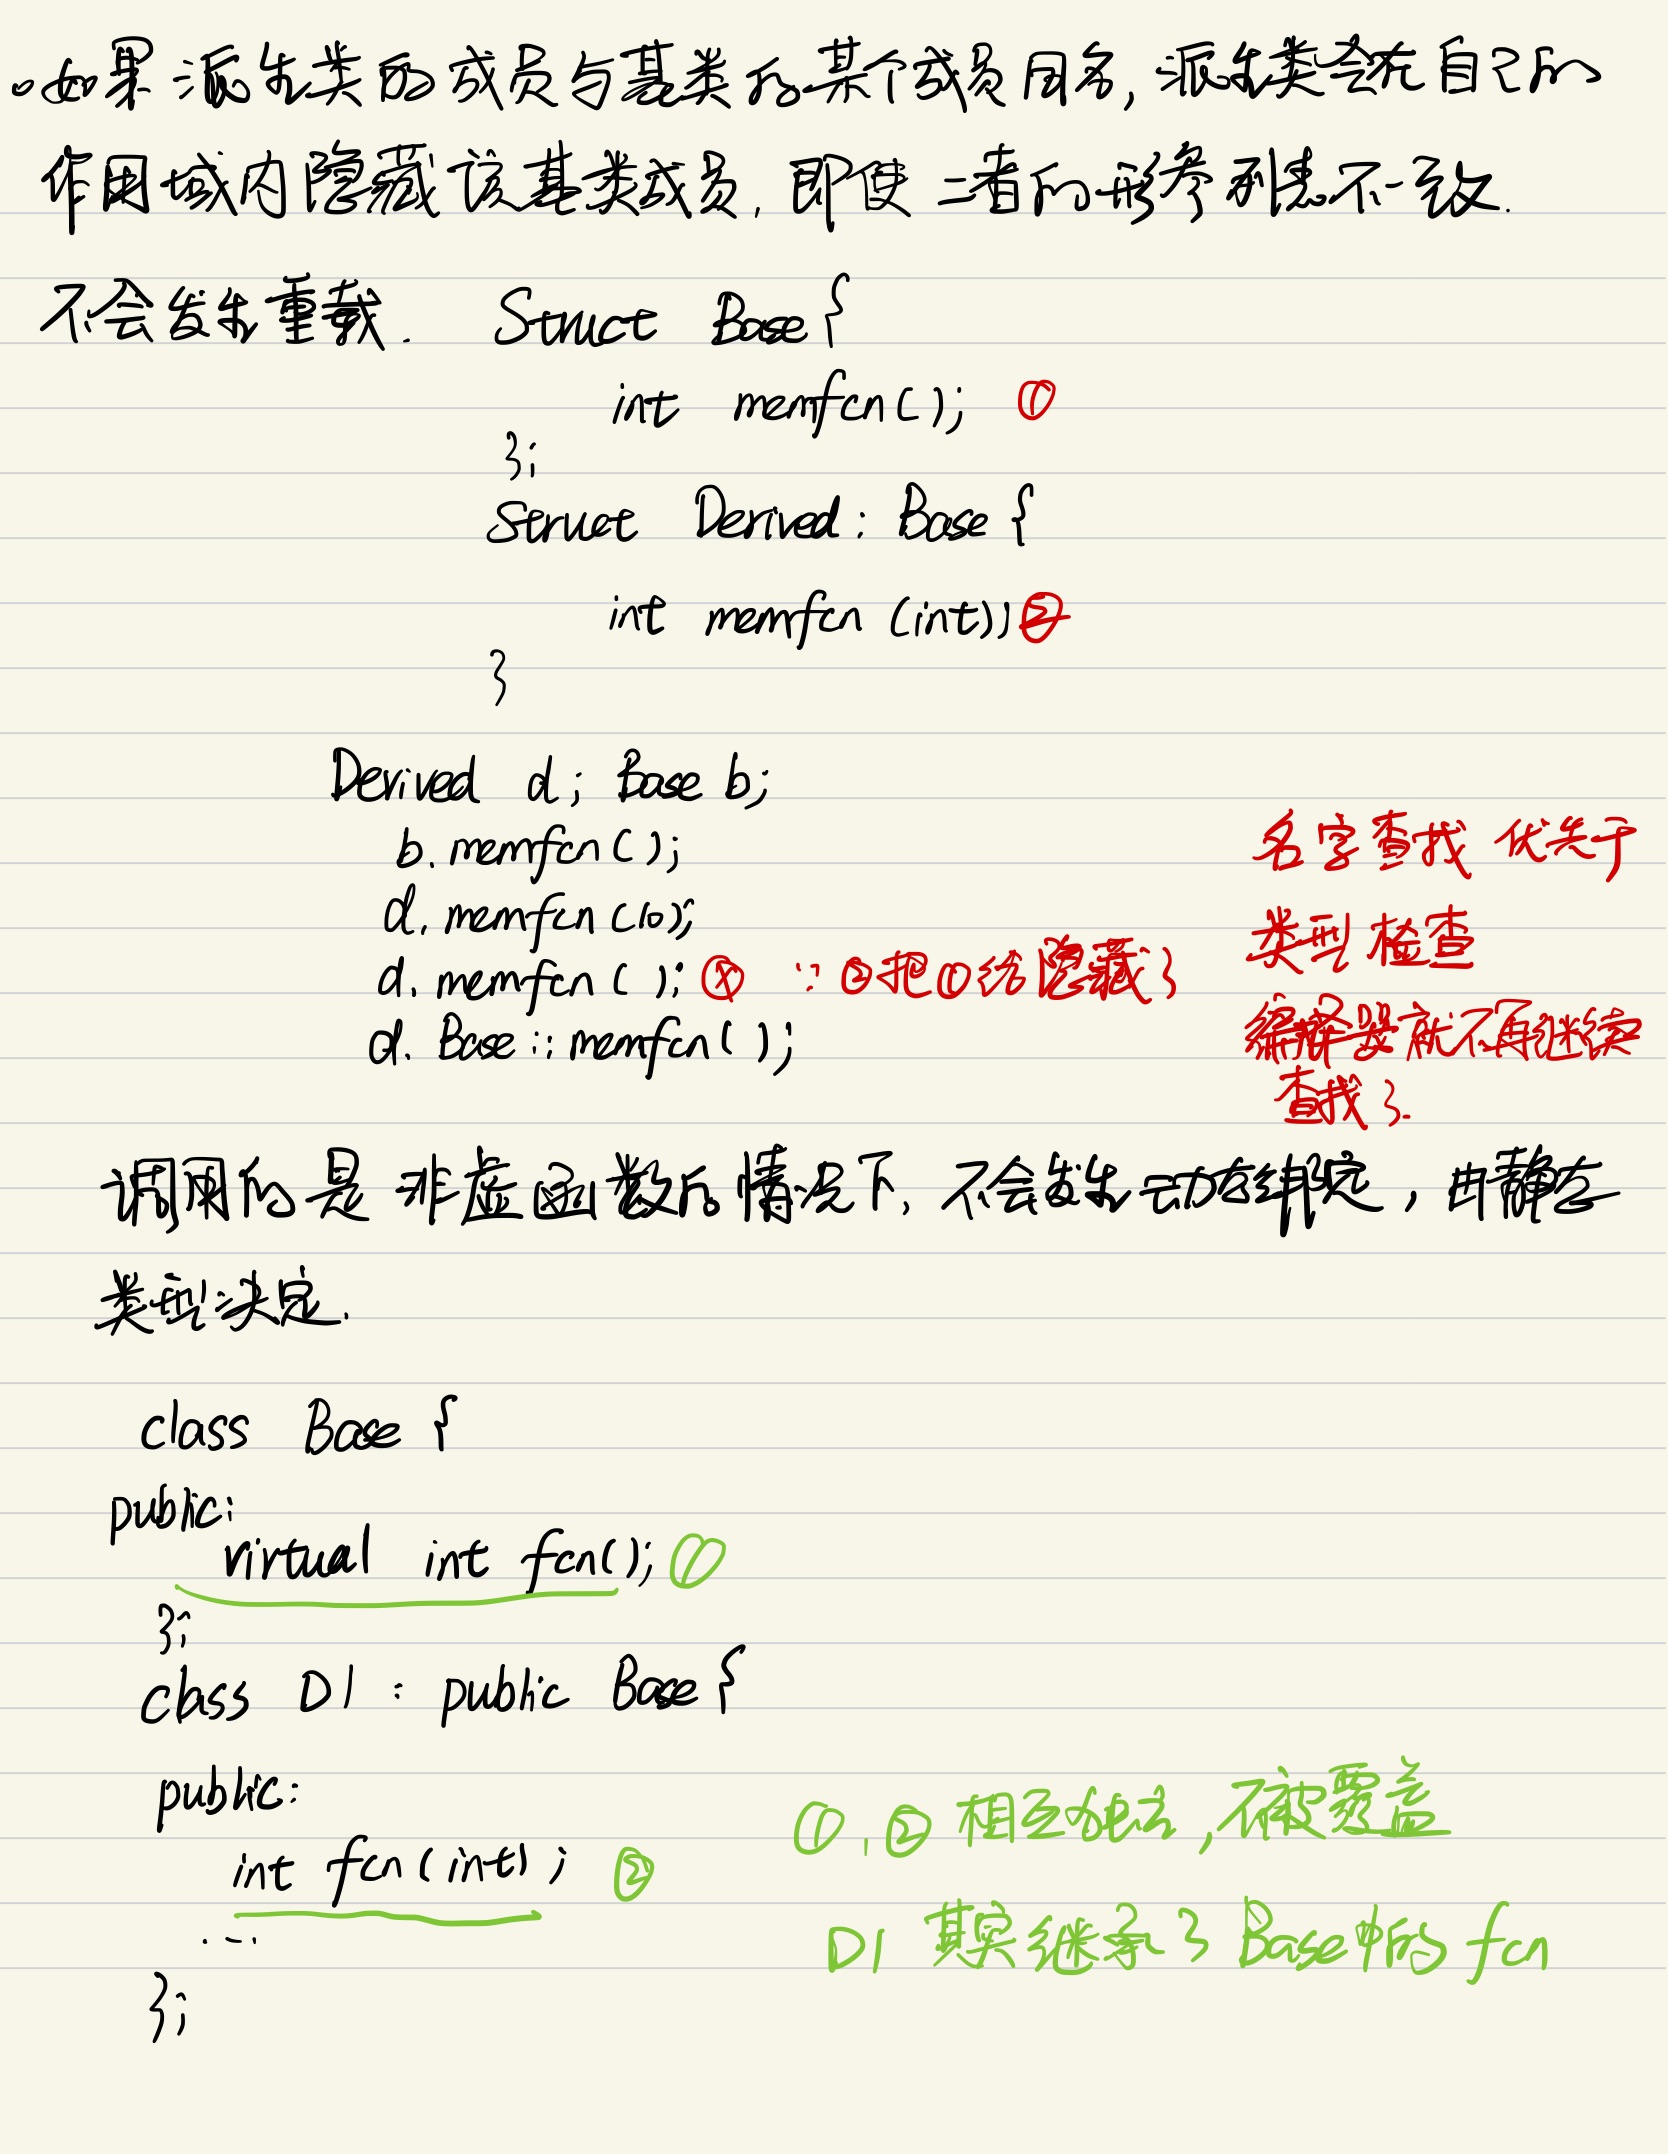 。如果派生类的成员与基类的某个成员同名,派生类会在自己的
作用域内隐藏该基类成员,即使二者的形参列表不一致.
不会发生重载. Struct Base {
int memfcn();  ①
};
Struct Derived: Base {
int memfcn (int); ②
}
Derived d; Base b;
b. memfcn();
d. memfcn(10);
d. memfcn(); ⓧ ∵ ②把①给隐藏了
d. Base :: memfcn();
名字查找 优先于
类型检查
编译器就不再继续
查找了.
调用的是非虚函数的情况下,不会发生动态绑定,由静态
类型决定.
class Base {
public:
virtual int fcn(); ①
};
class D1 : public Base {
public:
int fcn(int); ②
....
};
①,②相互独立,不被覆盖
D1 其实继承了Base中的fcn